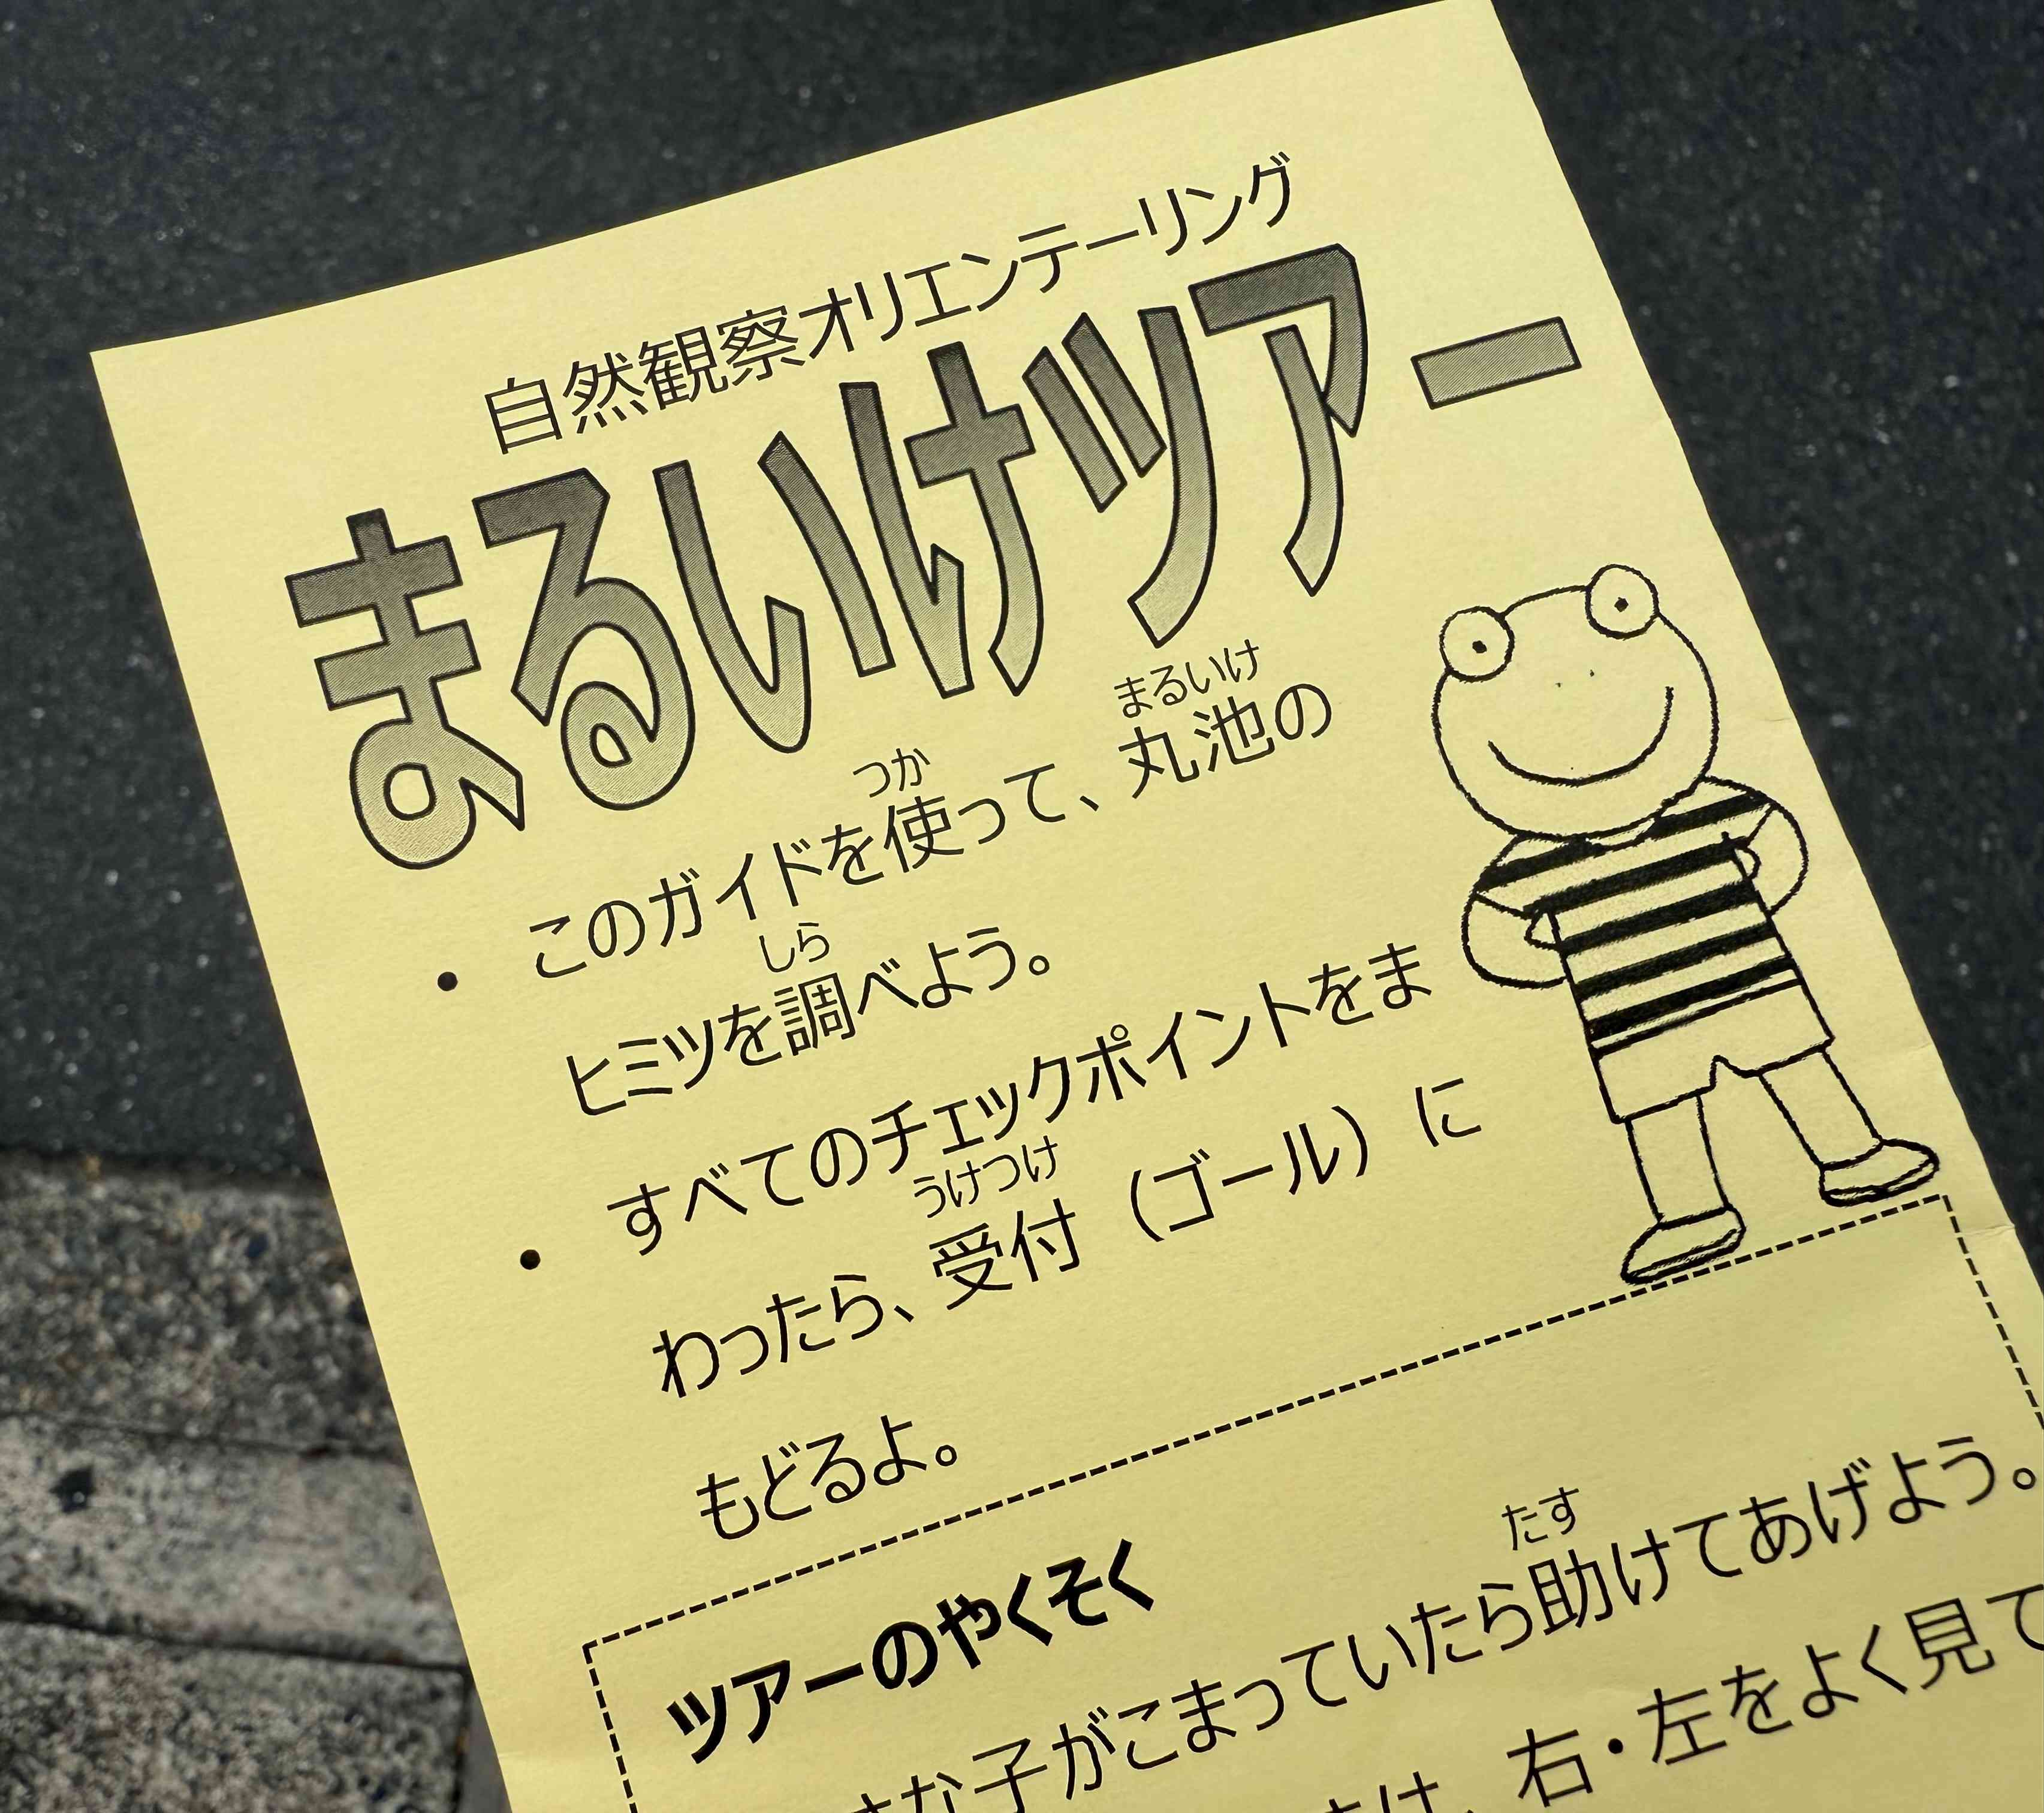 自然観察オリエンテーリング
まるいけツアー
まるいけ
つか
・ このガイドを使って、丸池の
しら
ヒミツを調べよう。
・ すべてのチェックポイントをま
うけつけ
わったら、受付（ゴール）に
もどるよ。
ツアーのやくそく
たす
な子がこまっていたら助けてあげよう。
は、右・左をよく見て